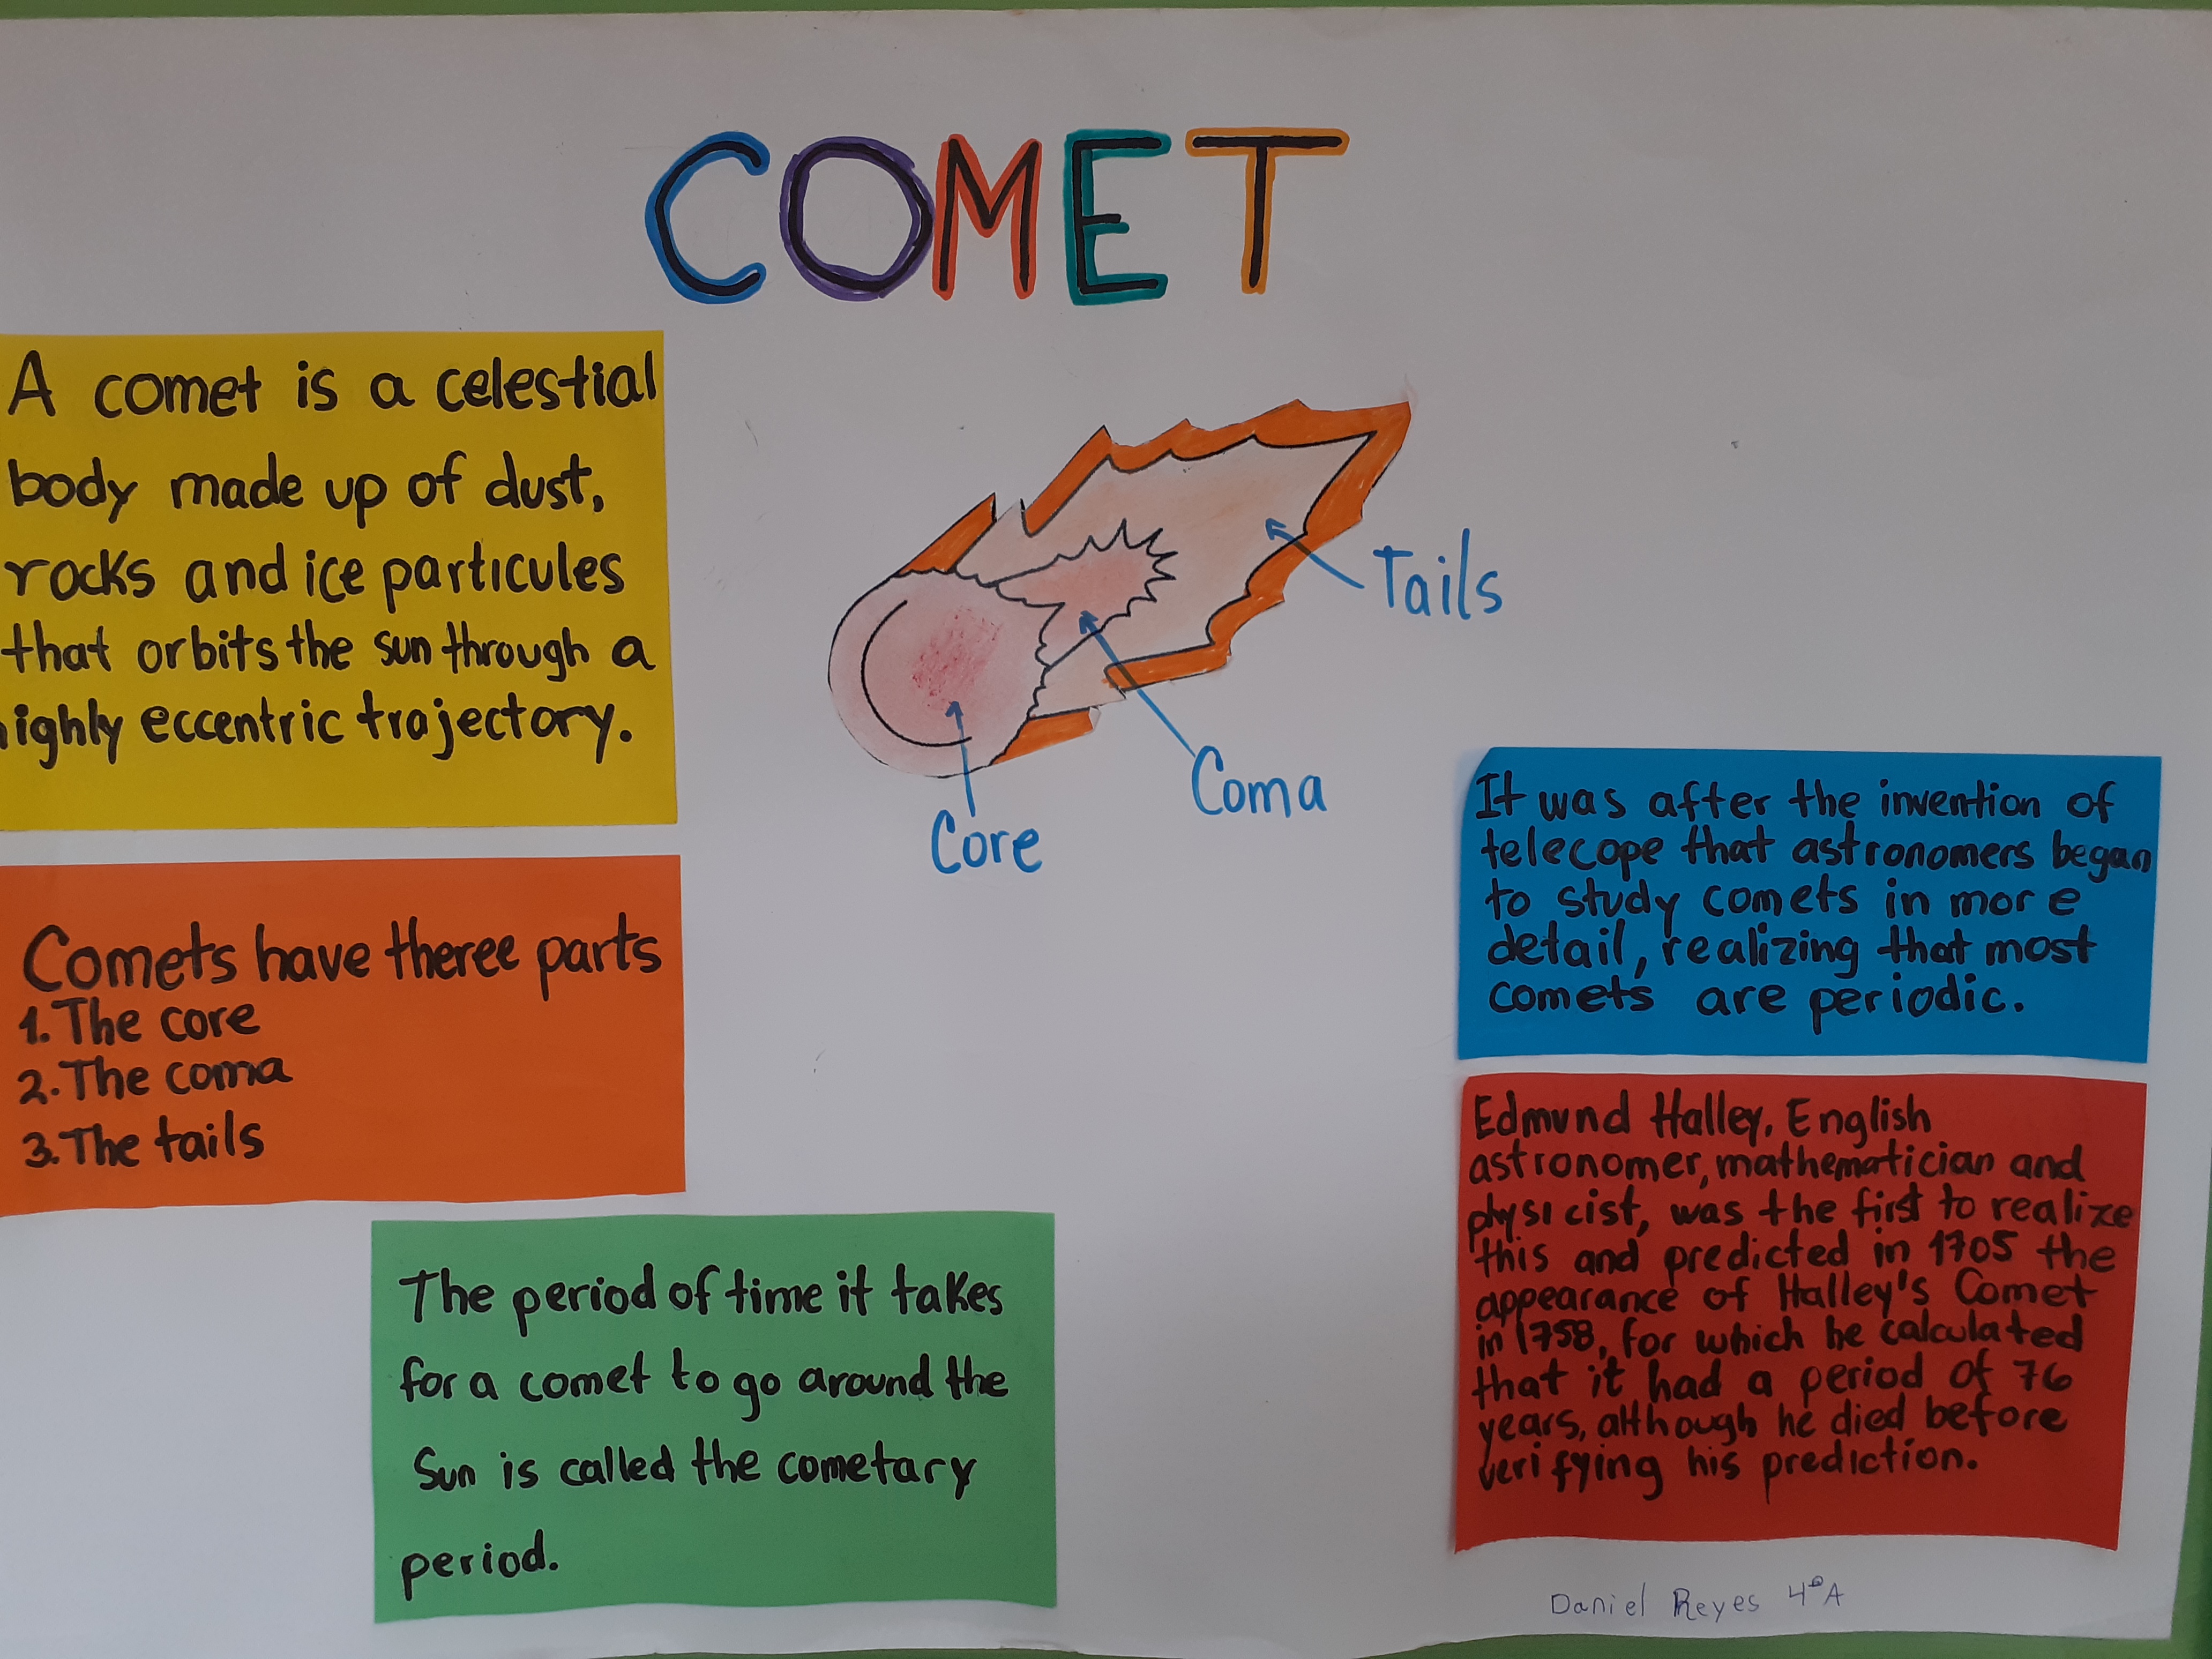 COMET
A comet is a celestial
body made up of dust,
rocks and ice particules
that orbits the sun through a
highly eccentric trajectory.
Tails
Coma
Core
Comets have theree parts
1. The core
2. The coma
3. The tails
The period of time it takes
for a comet to go around the
Sun is called the cometary
period.
It was after the invention of
telecope that astronomers began
to study comets in more
detail, realizing that most
comets are periodic.
Edmund Halley, English
astronomer, mathematician and
physicist, was the first to realize
this and predicted in 1705 the
appearance of Halley's Comet
in 1758, for which he calculated
that it had a period of 76
years, although he died before
verifying his prediction.
Daniel Reyes 4°A